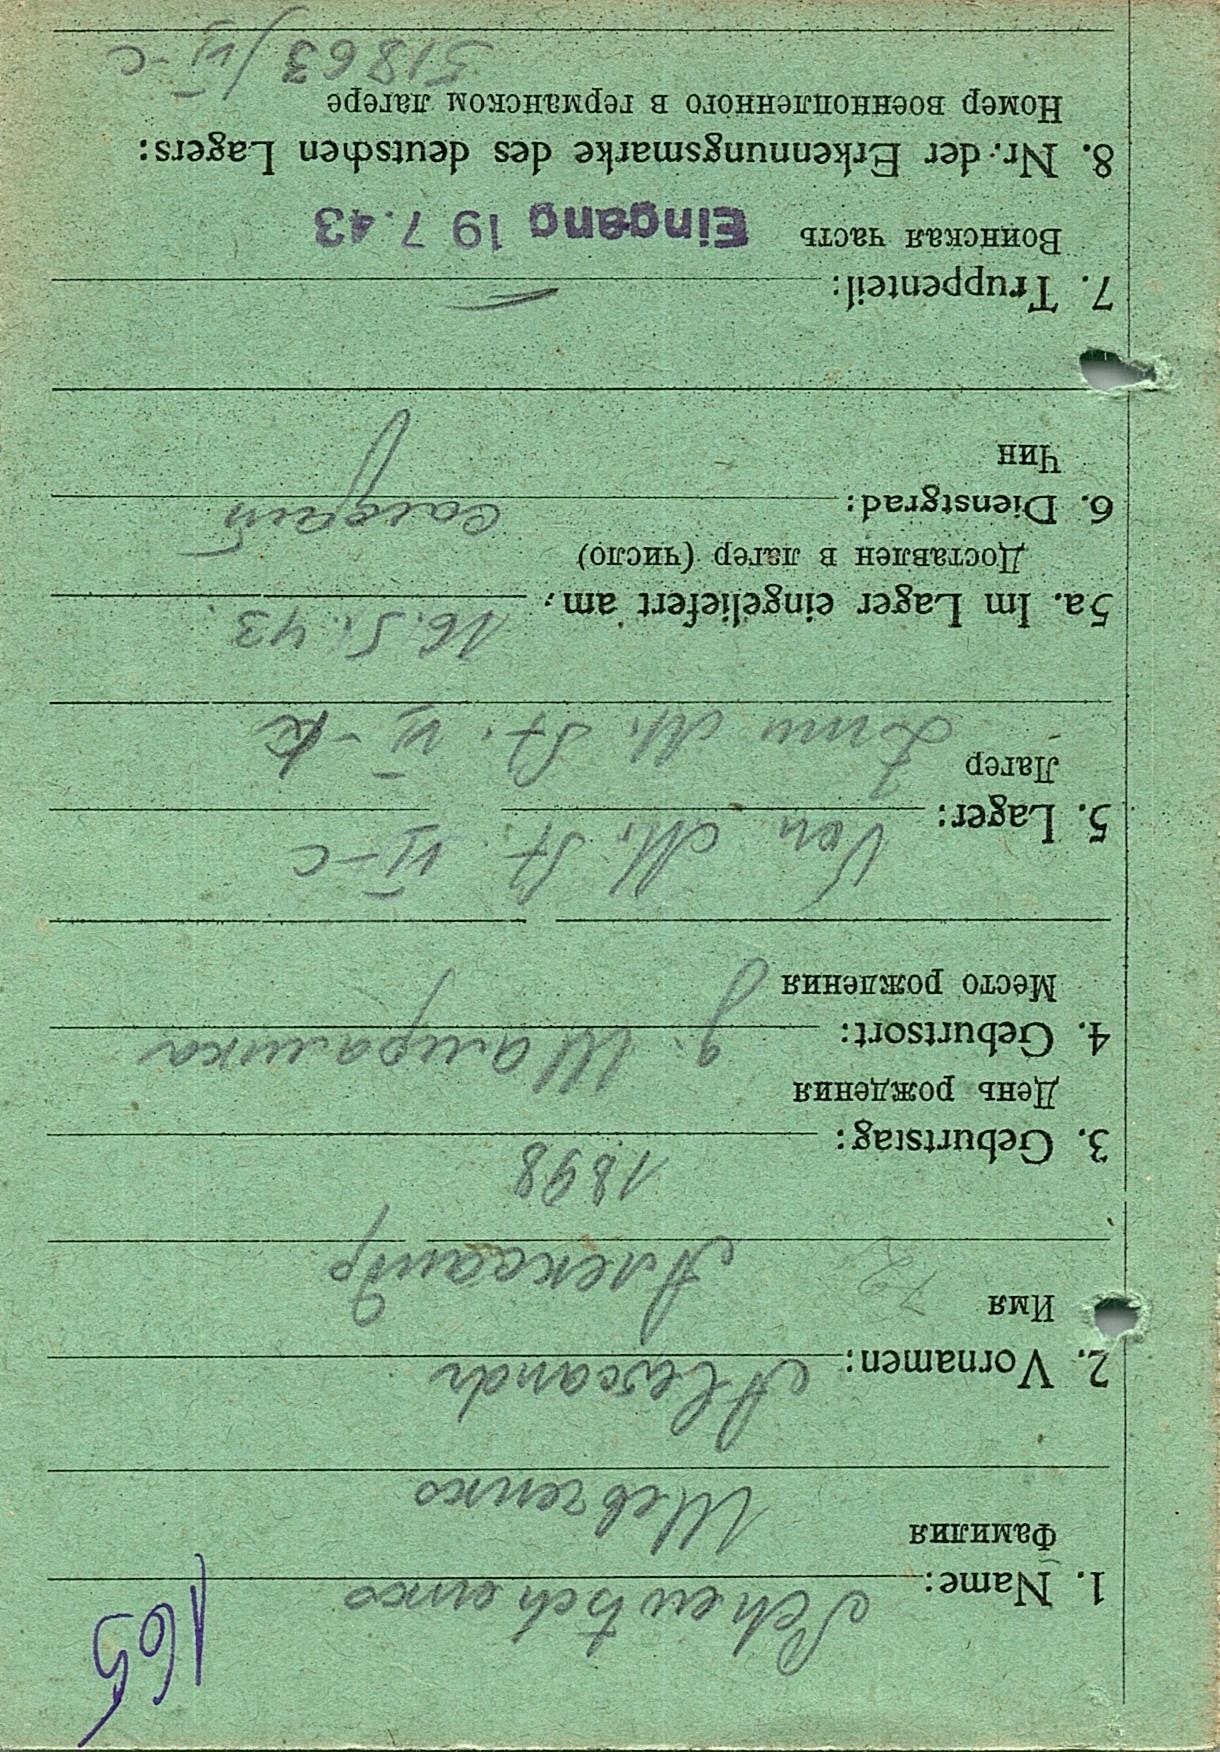 165
1. Name: Schewtschenko
Фамилия Шевченко
2. Vornamen: Alexandr
Имя Александр
72
3. Geburtstag: 1898
День рождения
4. Geburtsort: д.
Место рождения
5. Lager: Von M. St. VI-C
Лагер Zum M. St. VI-K
5a. Im Lager eingeliefert am: 16.5.43.
Доставлен в лагер (число)
6. Dienstgrad: солдат
Чин
7. Truppenteil: —
Воинская часть Eingang 19 7.43
8. Nr. der Erkennungsmarke des deutschen Lagers:
Номер военнопленного в германском лагере
51863/VI-C